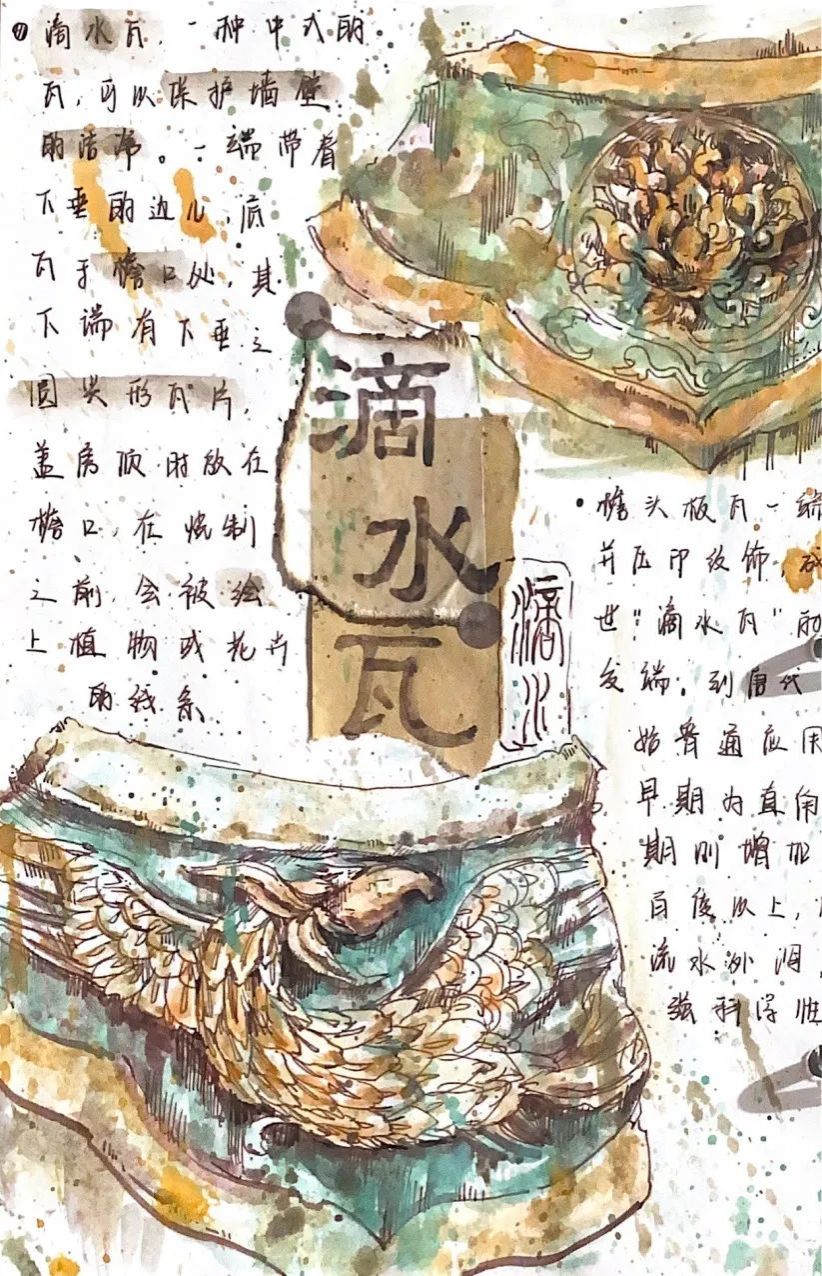 滴水瓦，一种中式的
瓦，可以保护墙壁
的洁净。一端带着
下垂的边儿，底
瓦于檐口处，其
下端有下垂之
圆尖形瓦片，
盖房顶时放在
檐口，在烧制
之前，会被绘
上植物或花卉
的线条
滴
水
瓦
滴水
檐头板瓦一端
并压印纹饰，成
世“滴水瓦”的
发端。到唐代
始普通应用
早期为直角
期则增加
百度以上，
流水外泪，
强科学性